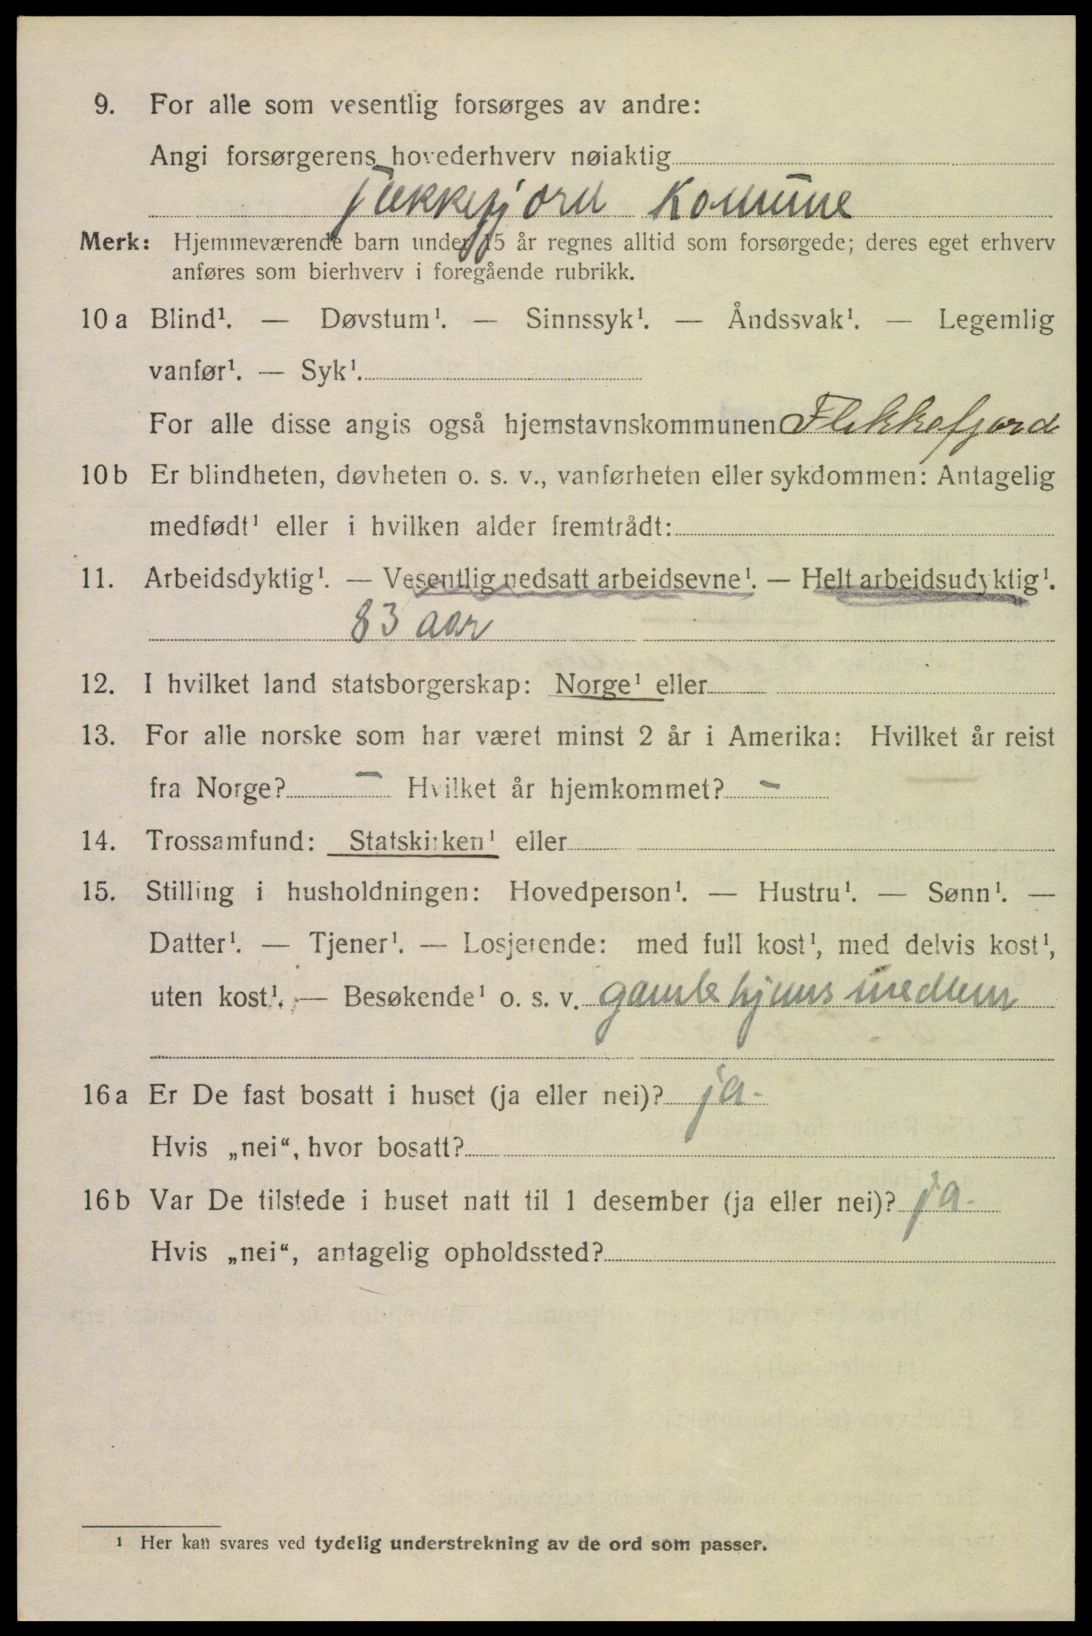 9. For alle som vesentlig forsørges av andre:
Angi forsørgerens hovederhverv nøiaktig
flekkefjord Komune
Merk: Hjemmeværende barn under 15 år regnes alltid som forsørgede; deres eget erhverv
anføres som bierhverv i foregående rubrikk.
10 a Blind¹. — Døvstum¹. — Sinnssyk¹. — Åndssvak¹. — Legemlig
vanfør¹. — Syk¹.
For alle disse angis også hjemstavnskommunen Flekkefjord
10 b Er blindheten, døvheten o. s. v., vanførheten eller sykdommen: Antagelig
medfødt¹ eller i hvilken alder fremtrådt:
11. Arbeidsdyktig¹. — Vesentlig nedsatt arbeidsevne¹. — Helt arbeidsudyktig¹.
83 aar
12. I hvilket land statsborgerskap: Norge¹ eller
13. For alle norske som har været minst 2 år i Amerika: Hvilket år reist
fra Norge? — Hvilket år hjemkommet? –
14. Trossamfund: Statskirken¹ eller
15. Stilling i husholdningen: Hovedperson¹. — Hustru¹. — Sønn¹. —
Datter¹. — Tjener¹. — Losjerende: med full kost¹, med delvis kost¹,
uten kost¹. — Besøkende¹ o. s. v. gamle hjems medlem
16 a Er De fast bosatt i huset (ja eller nei)? ja-
Hvis „nei“, hvor bosatt?
16 b Var De tilstede i huset natt til 1 desember (ja eller nei)? ja-
Hvis „nei“, antagelig opholdssted?
¹ Her kan svares ved tydelig understrekning av de ord som passer.